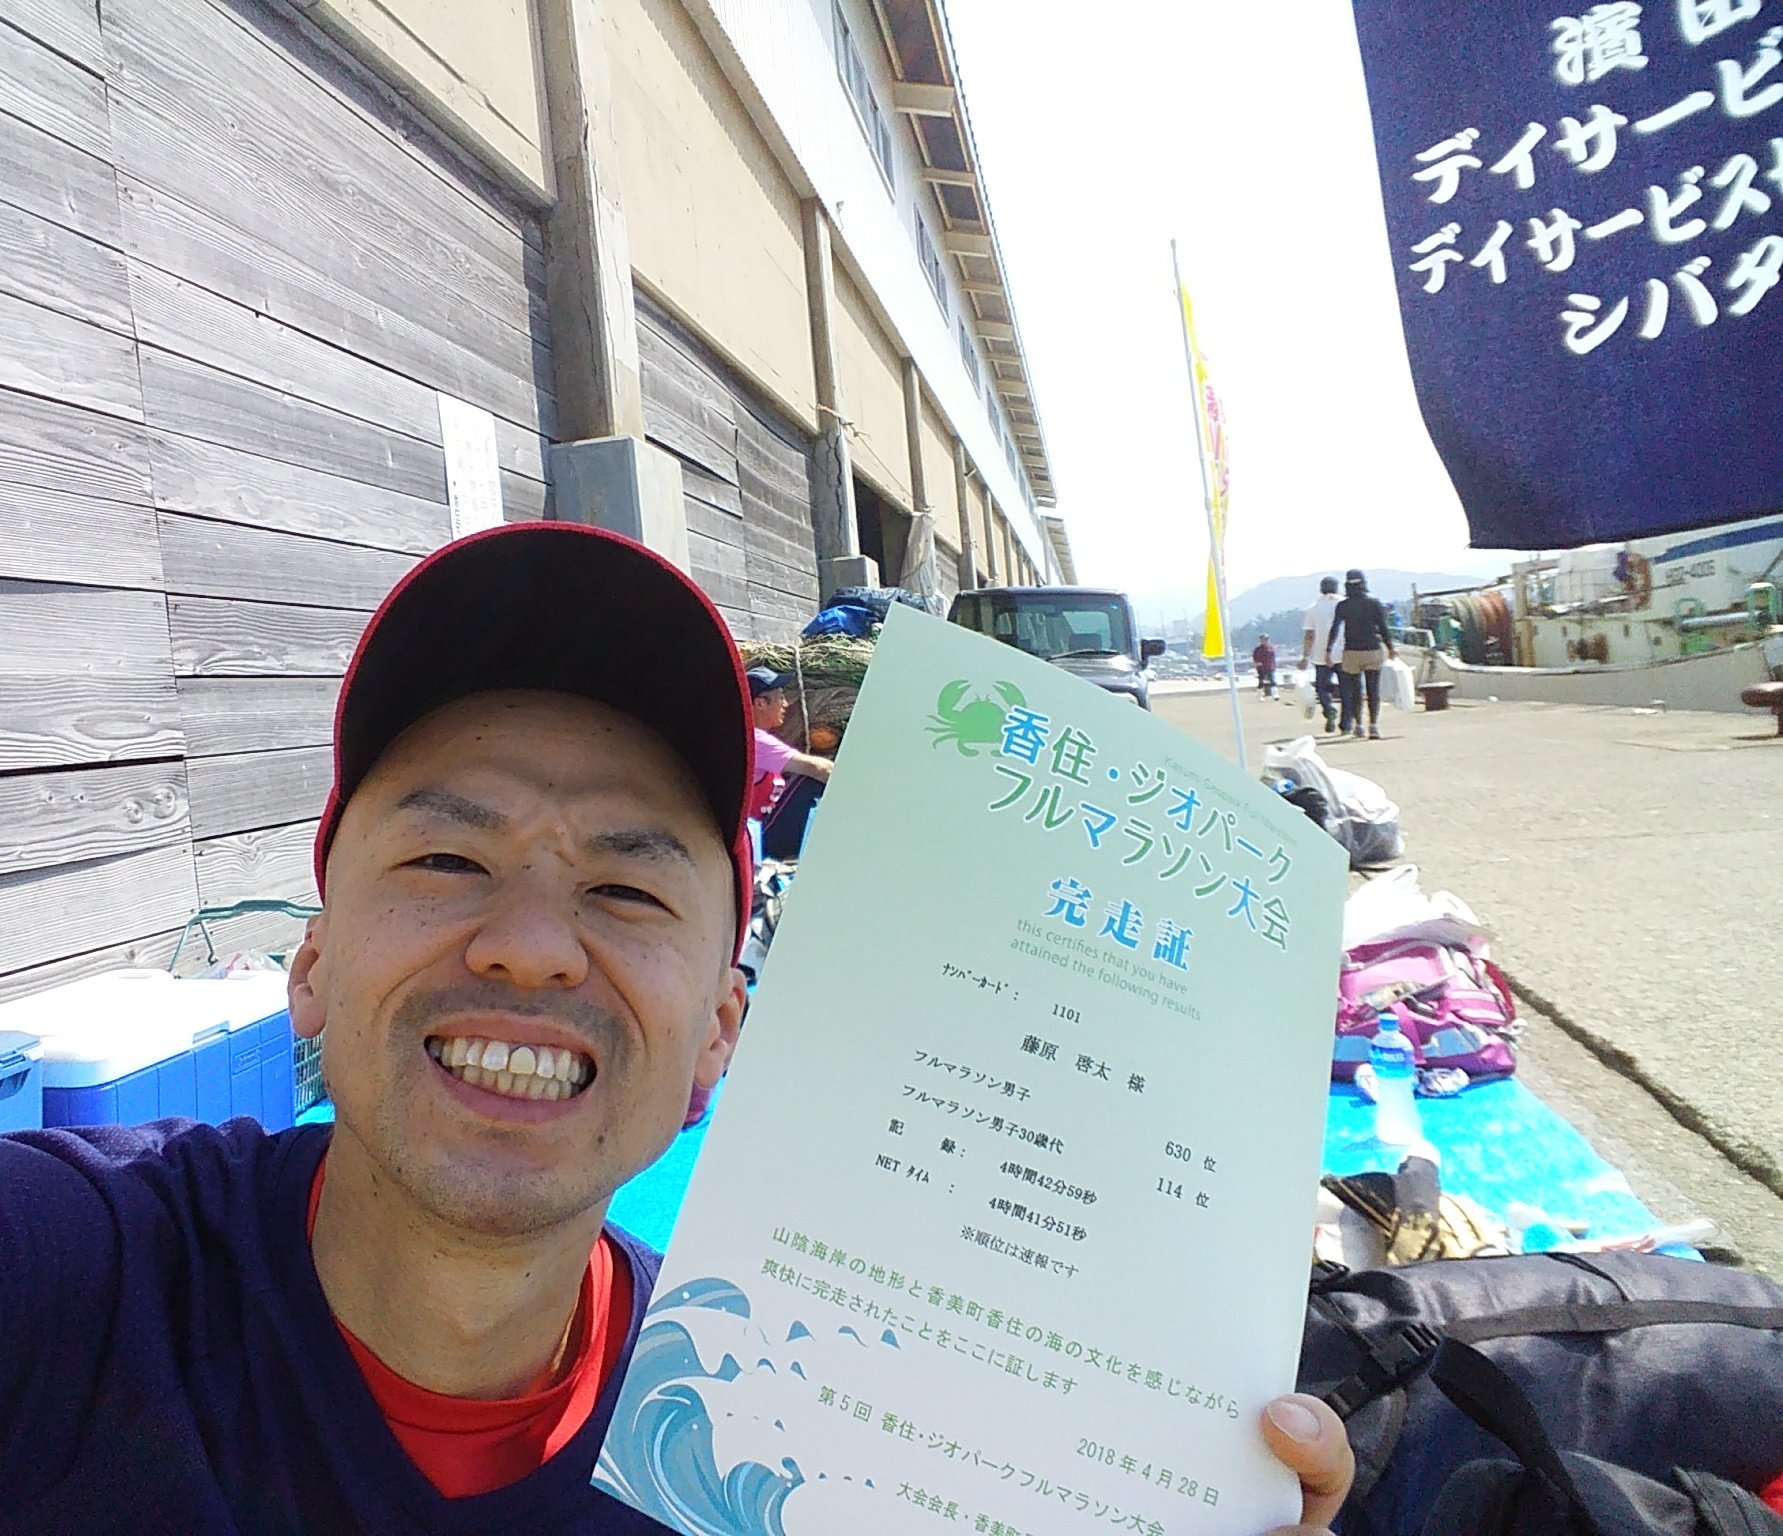 濱田
デイサービ
デイサービス
シバタ
香住・ジオパーク
フルマラソン大会
Kasumi Geopark Full Marathon
完走証
this certifies that you have
attained the following results
ナンバーカード： 1101
藤原 啓太 様
フルマラソン男子 630 位
フルマラソン男子30歳代 114 位
記 録： 4時間42分59秒
NET タイム ： 4時間41分51秒
※順位は速報です
山陰海岸の地形と香美町香住の海の文化を感じながら
爽快に完走されたことをここに証します
2018年4月28日
第5回 香住・ジオパークフルマラソン大会
大会会長・香美町